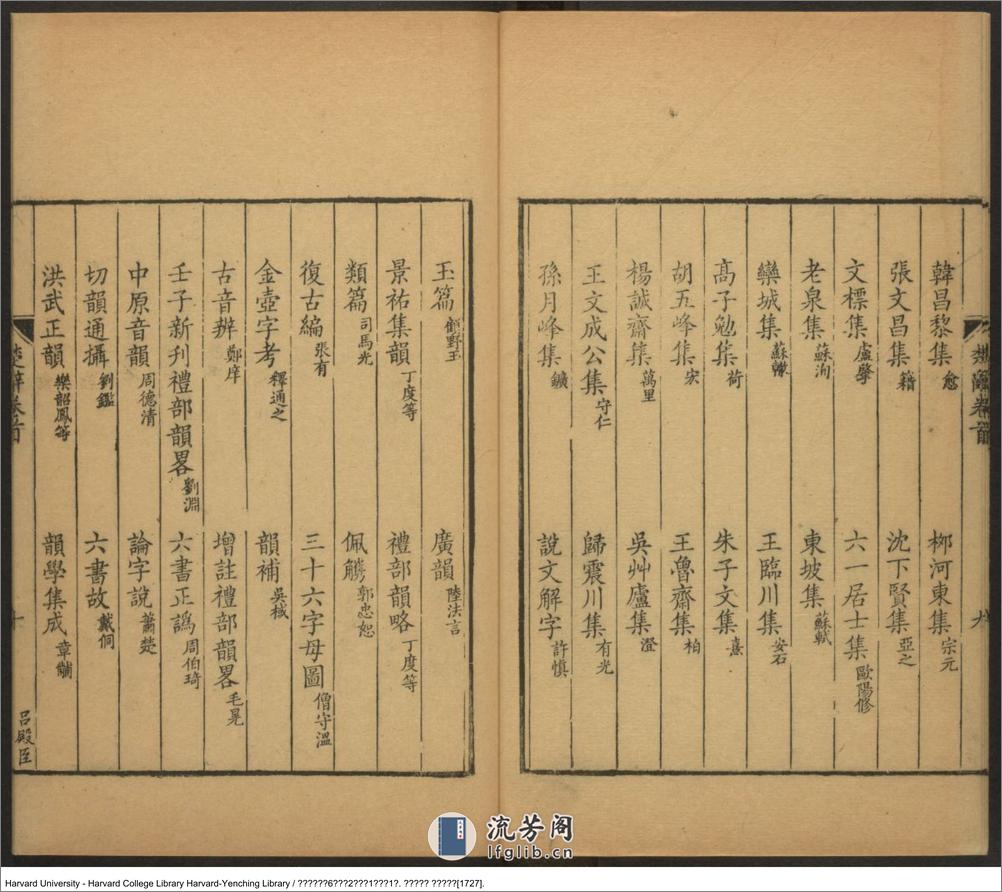 楚辭卷首
九
韓昌黎集 愈
柳河東集 宗元
張文昌集 籍
沈下賢集 亞之
文標集 盧肇
六一居士集 歐陽修
老泉集 蘇洵
東坡集 蘇軾
欒城集 蘇轍
王臨川集 安石
高子勉集 荷
朱子文集 熹
胡五峰集 宏
王魯齋集 柏
楊誠齋集 萬里
吳艸廬集 澄
王文成公集 守仁
歸震川集 有光
孫月峰集 鑛
說文解字 許慎
玉篇 顧野王
廣韻 陸法言
景祐集韻 丁度等
禮部韻略 丁度等
類篇 司馬光
佩觿 郭忠恕
復古編 張有
三十六字母圖 僧守溫
金壺字考 釋適之
韻補 吳棫
古音辨 鄭庠
增註禮部韻畧 毛晃
壬子新刊禮部韻畧 劉淵
六書正譌 周伯琦
中原音韻 周德清
論字說 蕭楚
切韻通攝 劉鑑
六書故 戴侗
洪武正韻 樂韶鳳等
韻學集成 章黼
楚辭卷首
十
呂殿臣
流芳阁
lfglib.cn
Harvard University - Harvard College Library Harvard-Yenching Library / ??????6???2???1???1?. ????? ?????[1727].